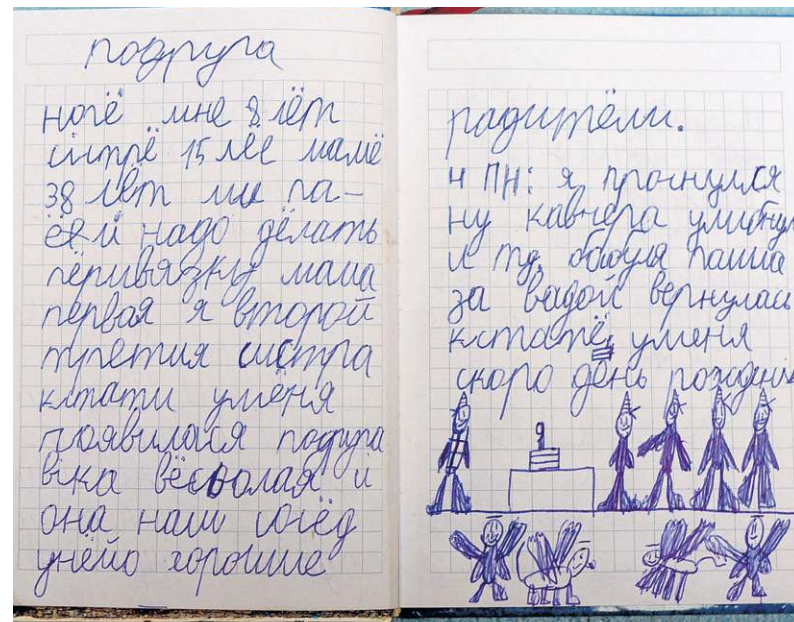 подруга
ногё мне 8 лёт
систрё 15 лёт мамё
38 лёт мы па-
ёли надо дёлать
пёривязку мама
первая я второй
третия систра
кстати умёня
появилася подруга
вика вёсолая и
она наш сосёд
унёйо хорошие
радитёли.
ч ПН: я проснулся
ну кавчера улибнул
и тд. бабуля пашла
за вадой вернулась
кстатё, уменя
скоро дёнь рождени
9